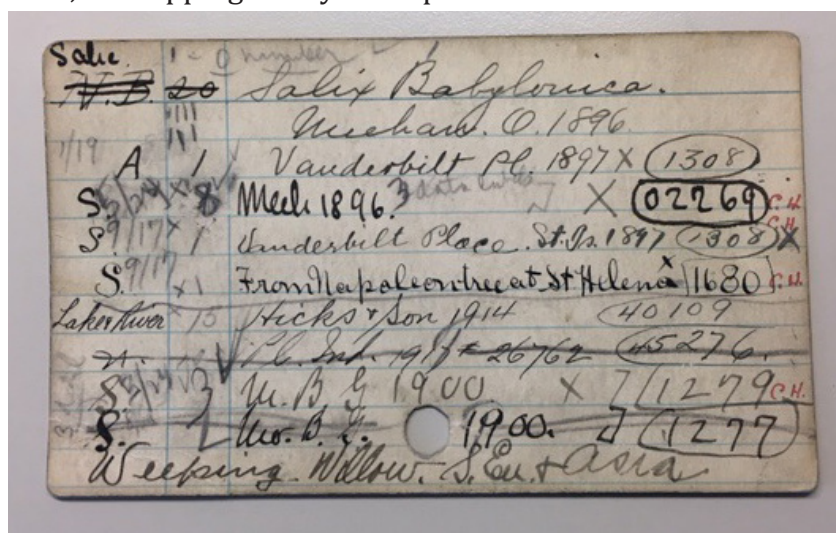 Salic. 1 - 0 number
N.B. 20 Salix Babylonica.
Meehan. O. 1896.
1/19 A 1 Vanderbilt Pl. 1897 X 1308
S. 5/24 x 8 Meeh 1896. 3 X 02269 C.H.
S. 9/17 x 1 Vanderbilt Place. St. Js. 1897 1308 X C.H.
S. 9/17 x 1 From Napoleon tree at St Helena x 1680 C.H.
Lake & River x 15 Hicks & Son 1914 40109
n. Pl. Ind. 26762 45276.
S 5/24 3 M. B G 1900 X 1279 C.H.
S. 2 Mo. B. G. 1900. 1277
Weeping Willow. S. Eu. & Asia